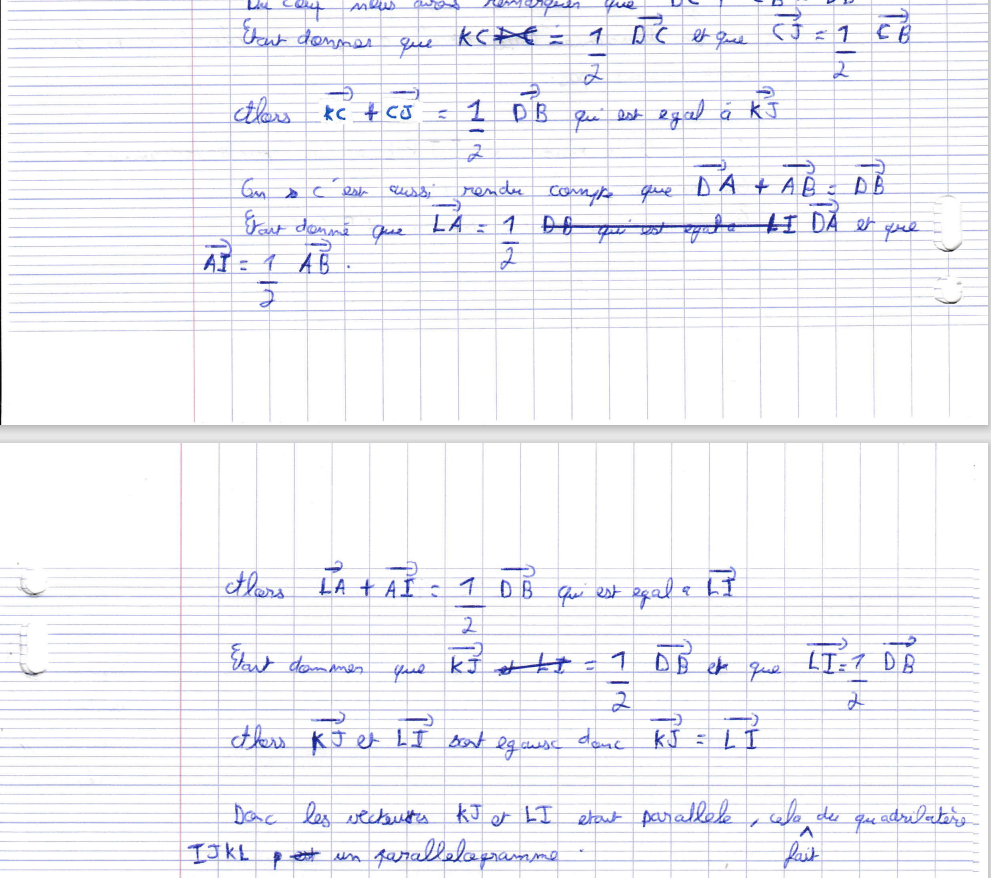 Du coup nous avons remarquer que DC + CB = DB
Etant donner que KC = 1/2 DC et que CJ = 1/2 CB
Alors KC + CJ = 1/2 DB qui est egal à KJ
On s c'est aussi rendu compte que DA + AB = DB
Etant donné que LA = 1/2 DB qui est egal a LI DA et que
AI = 1/2 AB.
Alors LA + AI = 1/2 DB qui est egal a LI
Etant donner que KJ et LI = 1/2 DB et que LI = 1/2 DB
Alors KJ et LI sont egaux donc KJ = LI
Donc les vecteurs KJ et LI etant parallele, cela fait du quadrilatère
IJKL un parallelogramme.